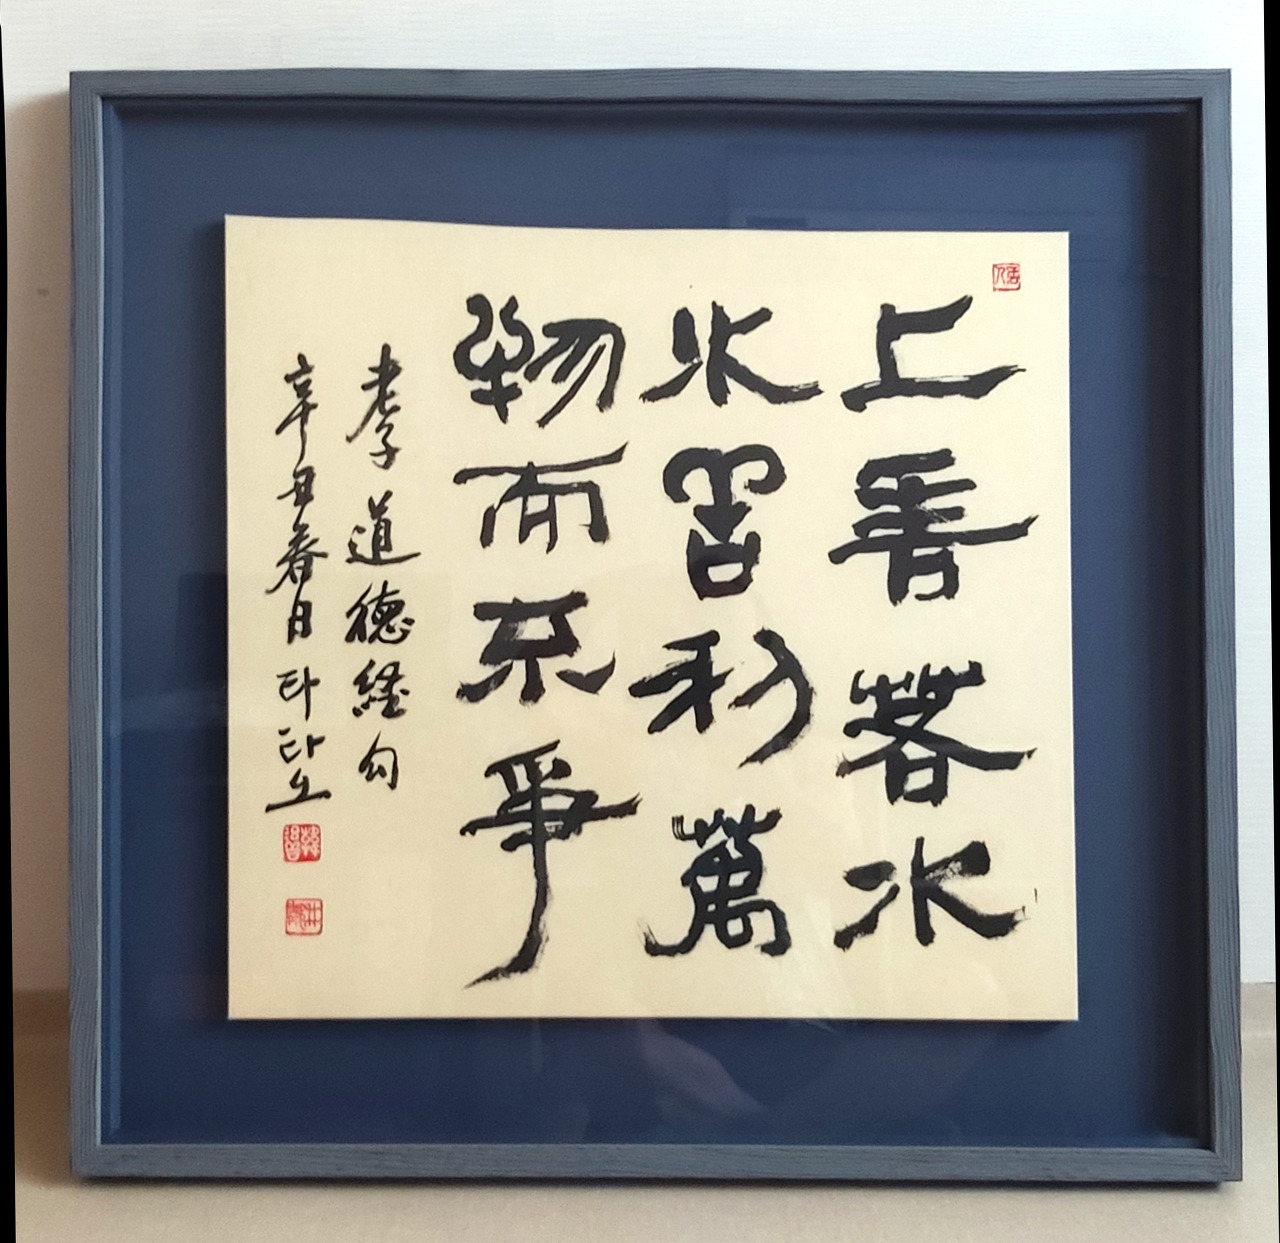 上善若水
水善利萬
物而不爭
老子道德經句
辛丑春日 타타오